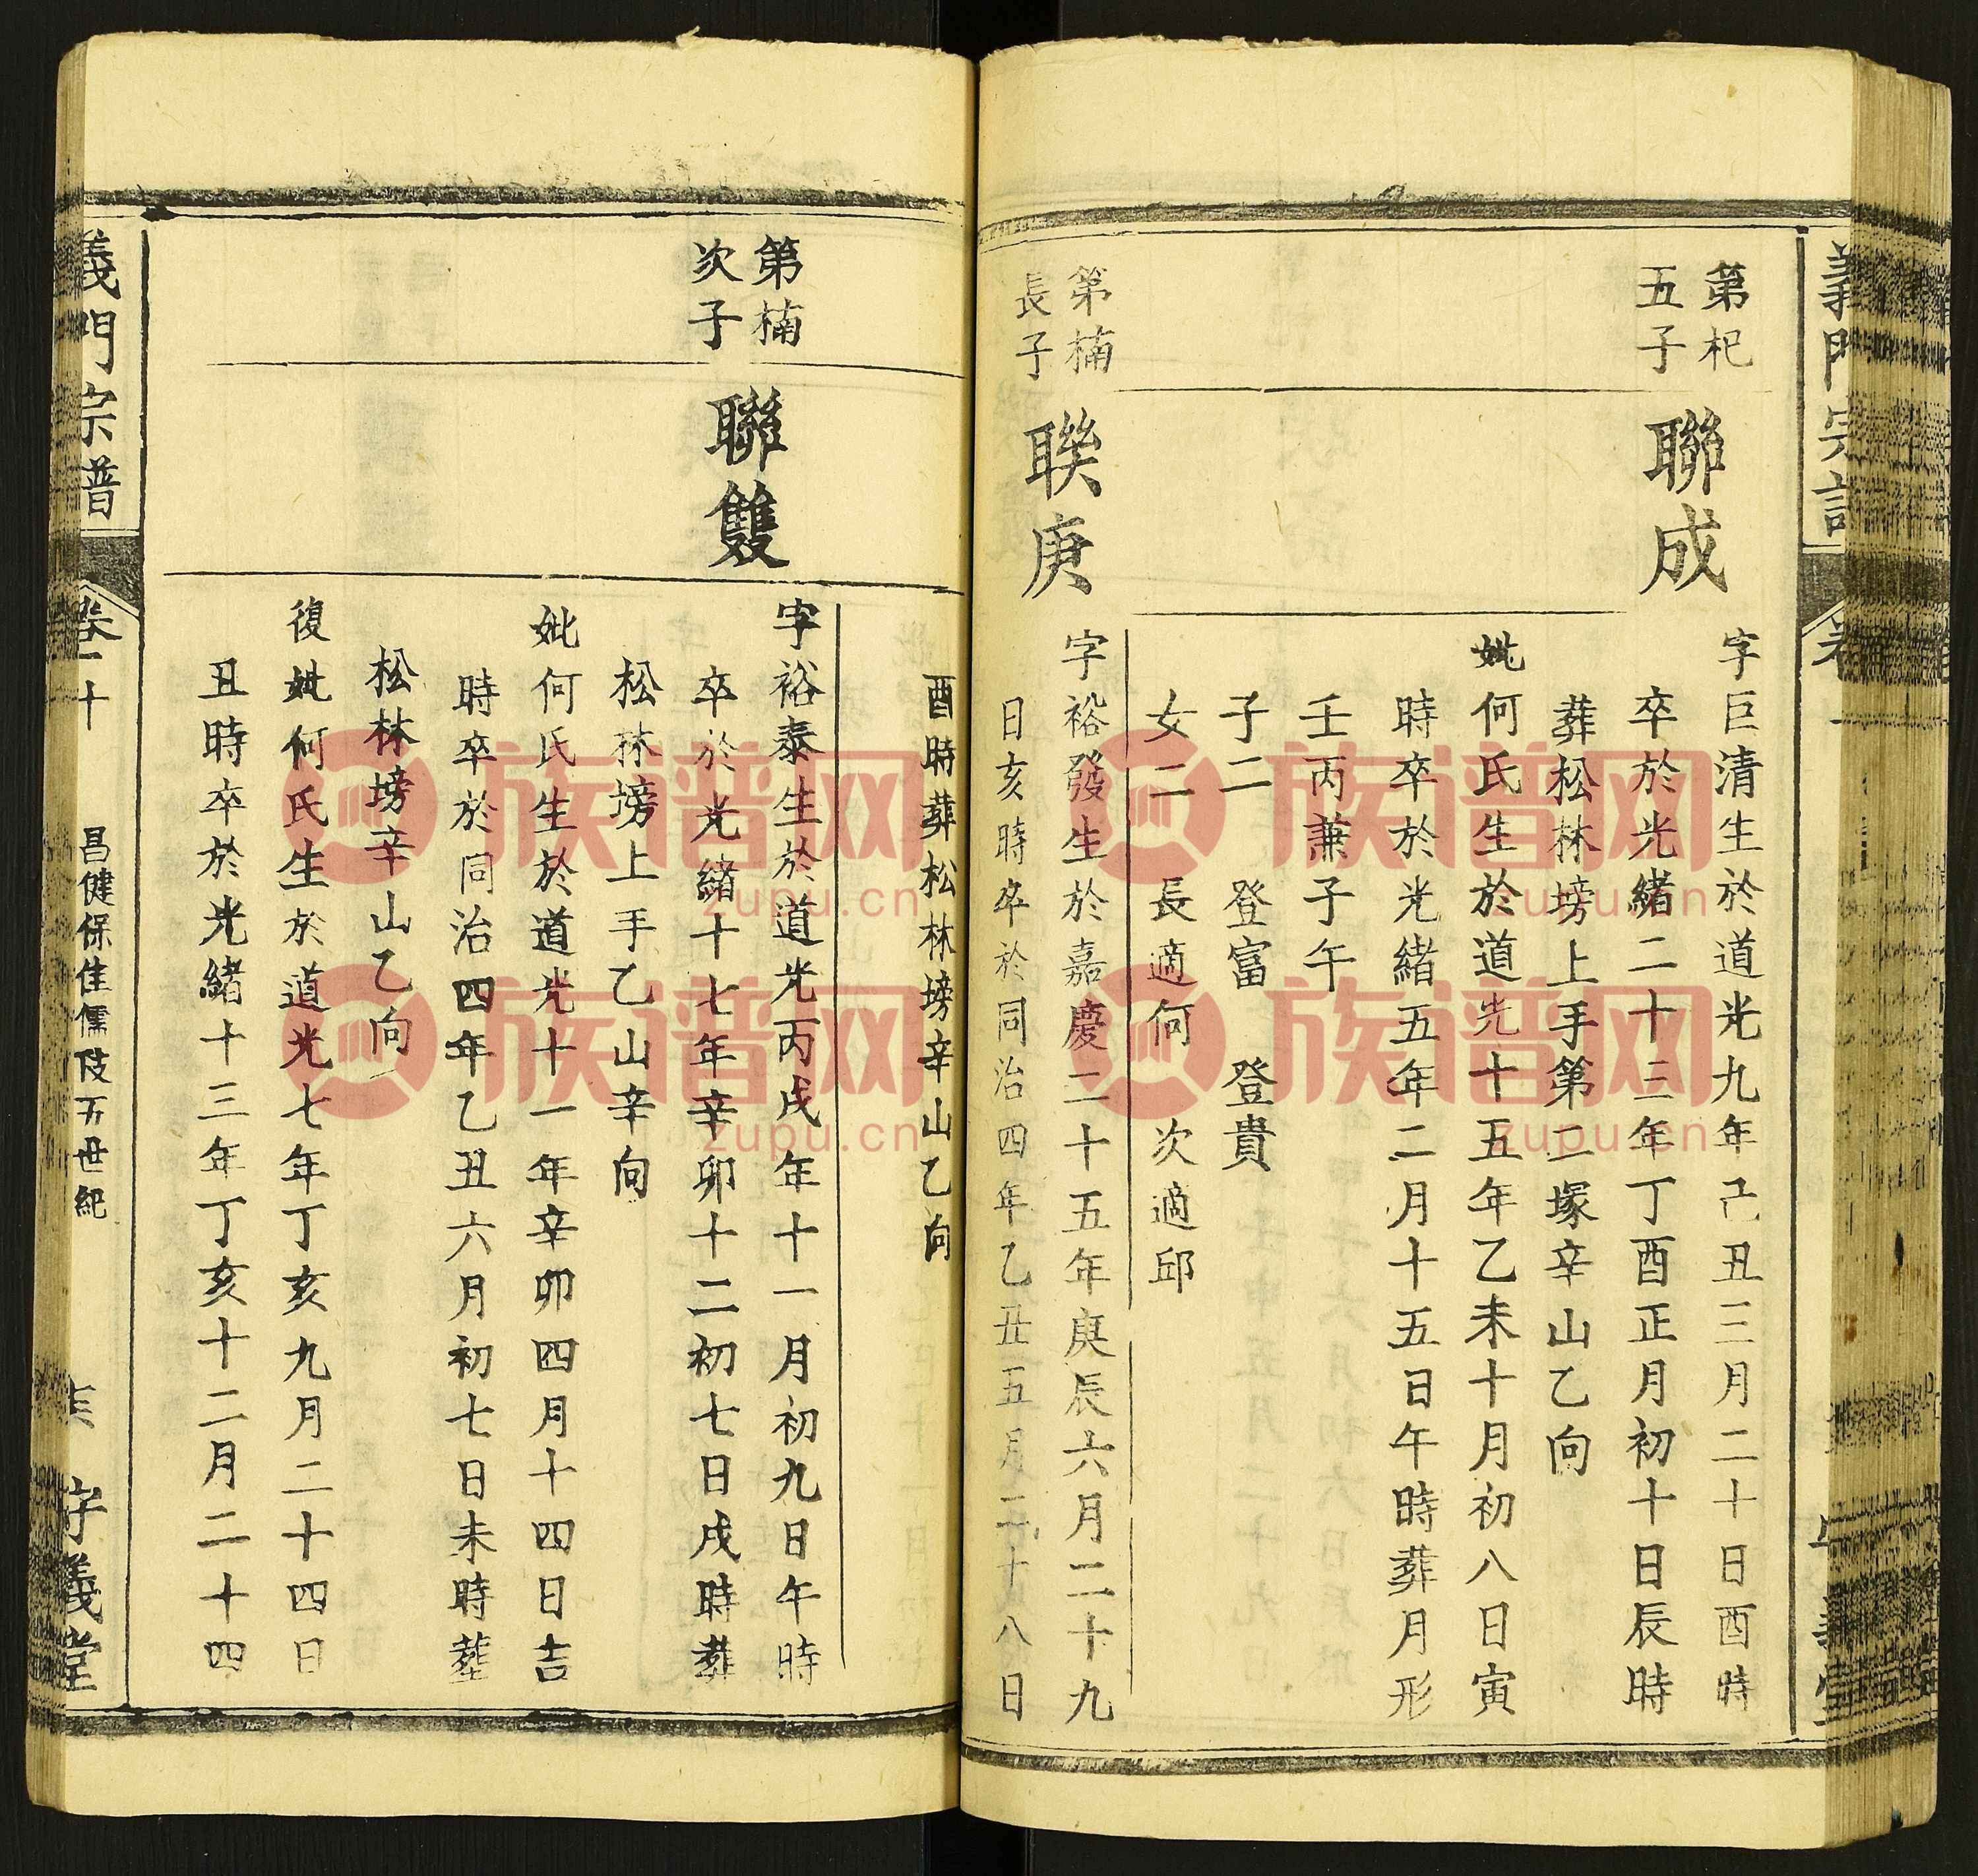 第杞
五子
聯成
字巨清生於道光九年己丑三月二十日酉時
卒於光緒二十三年丁酉正月初十日辰時
葬松林塝上手第二塚辛山乙向
妣何氏生於道光十五年乙未十月初八日寅
時卒於光緒五年二月十五日午時葬月形
壬丙兼子午
子二 登富 登貴
女二 長適何 次適邱
第楠
長子
聨庚
字裕發生於嘉慶二十五年庚辰六月二十九
日亥時卒於同治四年乙丑五月二十八日
酉時葬松林塝辛山乙向
第楠
次子
聯雙
字裕泰生於道光丙戌年十一月初九日午時
卒於光緒十七年辛卯十二初七日戌時葬
松林塝上手乙山辛向
妣何氏生於道光十一年辛卯四月十四日吉
時卒於同治四年乙丑六月初七日未時塟
松林塝辛山乙向
復妣何氏生於道光七年丁亥九月二十四日
丑時卒於光緒十三年丁亥十二月二十四
義門宗譜
卷十
昌健保佳儒伎五世紀
守義堂
族谱网
zupu.cn
族谱网
zupu.cn
族谱网
zupu.cn
族谱网
zupu.cn